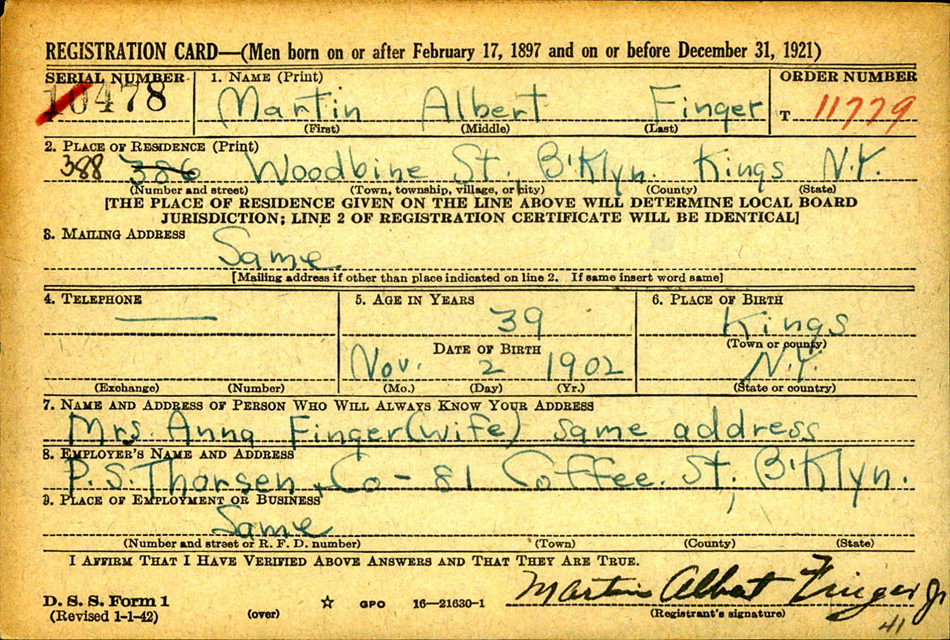 REGISTRATION CARD—(Men born on or after February 17, 1897 and on or before December 31, 1921)
SERIAL NUMBER 1. NAME (Print) ORDER NUMBER
10478 Martin Albert Finger T 11779
(First) (Middle) (Last)
2. PLACE OF RESIDENCE (Print)
388 386 Woodbine St. B'Klyn. Kings N.Y.
(Number and street) (Town, township, village, or city) (County) (State)
[THE PLACE OF RESIDENCE GIVEN ON THE LINE ABOVE WILL DETERMINE LOCAL BOARD
JURISDICTION; LINE 2 OF REGISTRATION CERTIFICATE WILL BE IDENTICAL]
3. MAILING ADDRESS
Same
[Mailing address if other than place indicated on line 2. If same insert word same]
4. TELEPHONE 5. AGE IN YEARS 6. PLACE OF BIRTH
39 Kings
DATE OF BIRTH (Town or county)
Nov. 2 1902 N.Y.
(Exchange) (Number) (Mo.) (Day) (Yr.) (State or country)
7. NAME AND ADDRESS OF PERSON WHO WILL ALWAYS KNOW YOUR ADDRESS
Mrs. Anna Finger (wife) same address
8. EMPLOYER'S NAME AND ADDRESS
P.S. Thorsen Co - 81 Coffee. St, B'Klyn.
9. PLACE OF EMPLOYMENT OR BUSINESS
Same
(Number and street or R. F. D. number) (Town) (County) (State)
I AFFIRM THAT I HAVE VERIFIED ABOVE ANSWERS AND THAT THEY ARE TRUE.
Martin Albert Finger Jr
D. S. S. Form 1
(Revised 1-1-42) (over) GPO 16—21630-1 (Registrant's signature)
41